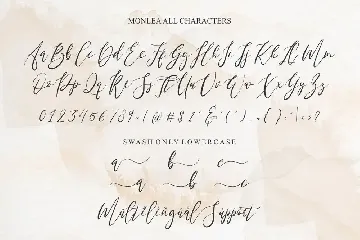 MONLEA ALL CHARACTERS
Aa Bb Cc Dd Ee Ff Gg Hh Ii Jj Kk Ll Mm
Oo Pp Qq Rr Ss Tt Uu Vv Ww Xx Yy Zz
0123456789
SWASH ONLY LOWERCASE
a b c
a b c
Multilingual Support